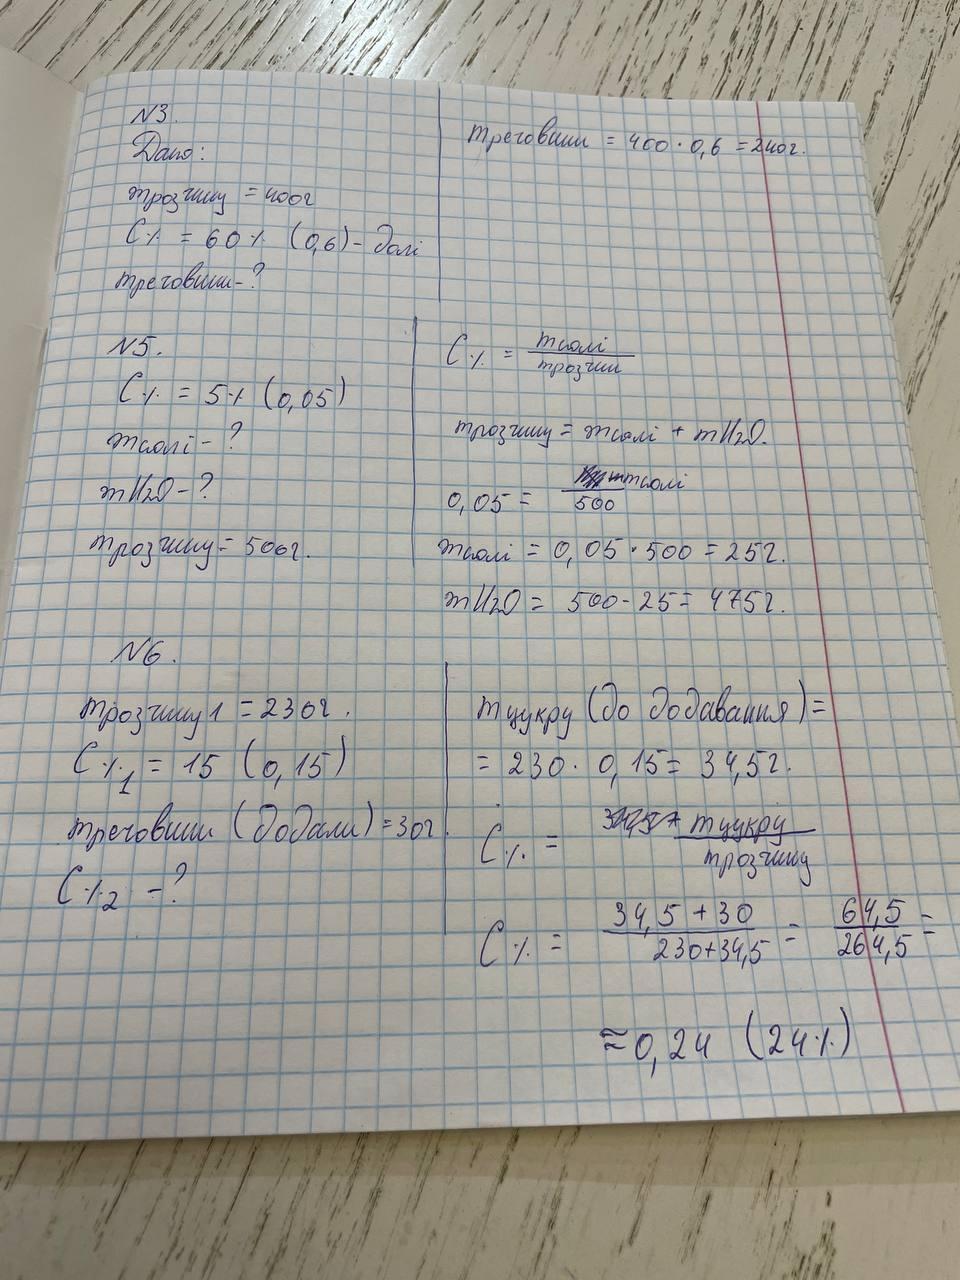 N3.
Дано:
mрозчину = 400г
C% = 60% (0,6) - долі
mречовини - ?
mречовини = 400 · 0,6 = 240г.
N5.
C% = 5% (0,05)
mсолі - ?
mH2O - ?
mрозчину = 500г.
C% = mсолі / mрозчин
mрозчину = mсолі + mH2O.
0,05 = mсолі / 500
mсолі = 0,05 · 500 = 25г.
mH2O = 500 - 25 = 475г.
N6.
mрозчину1 = 230г.
C%1 = 15 (0,15)
mречовини (додали) = 30г.
C%2 - ?
mцукру (до додавання) =
= 230 · 0,15 = 34,5г.
C% = mцукру / mрозчину
C% = 34,5 + 30 / 230 + 34,5 = 64,5 / 264,5 =
≈ 0,24 (24%)